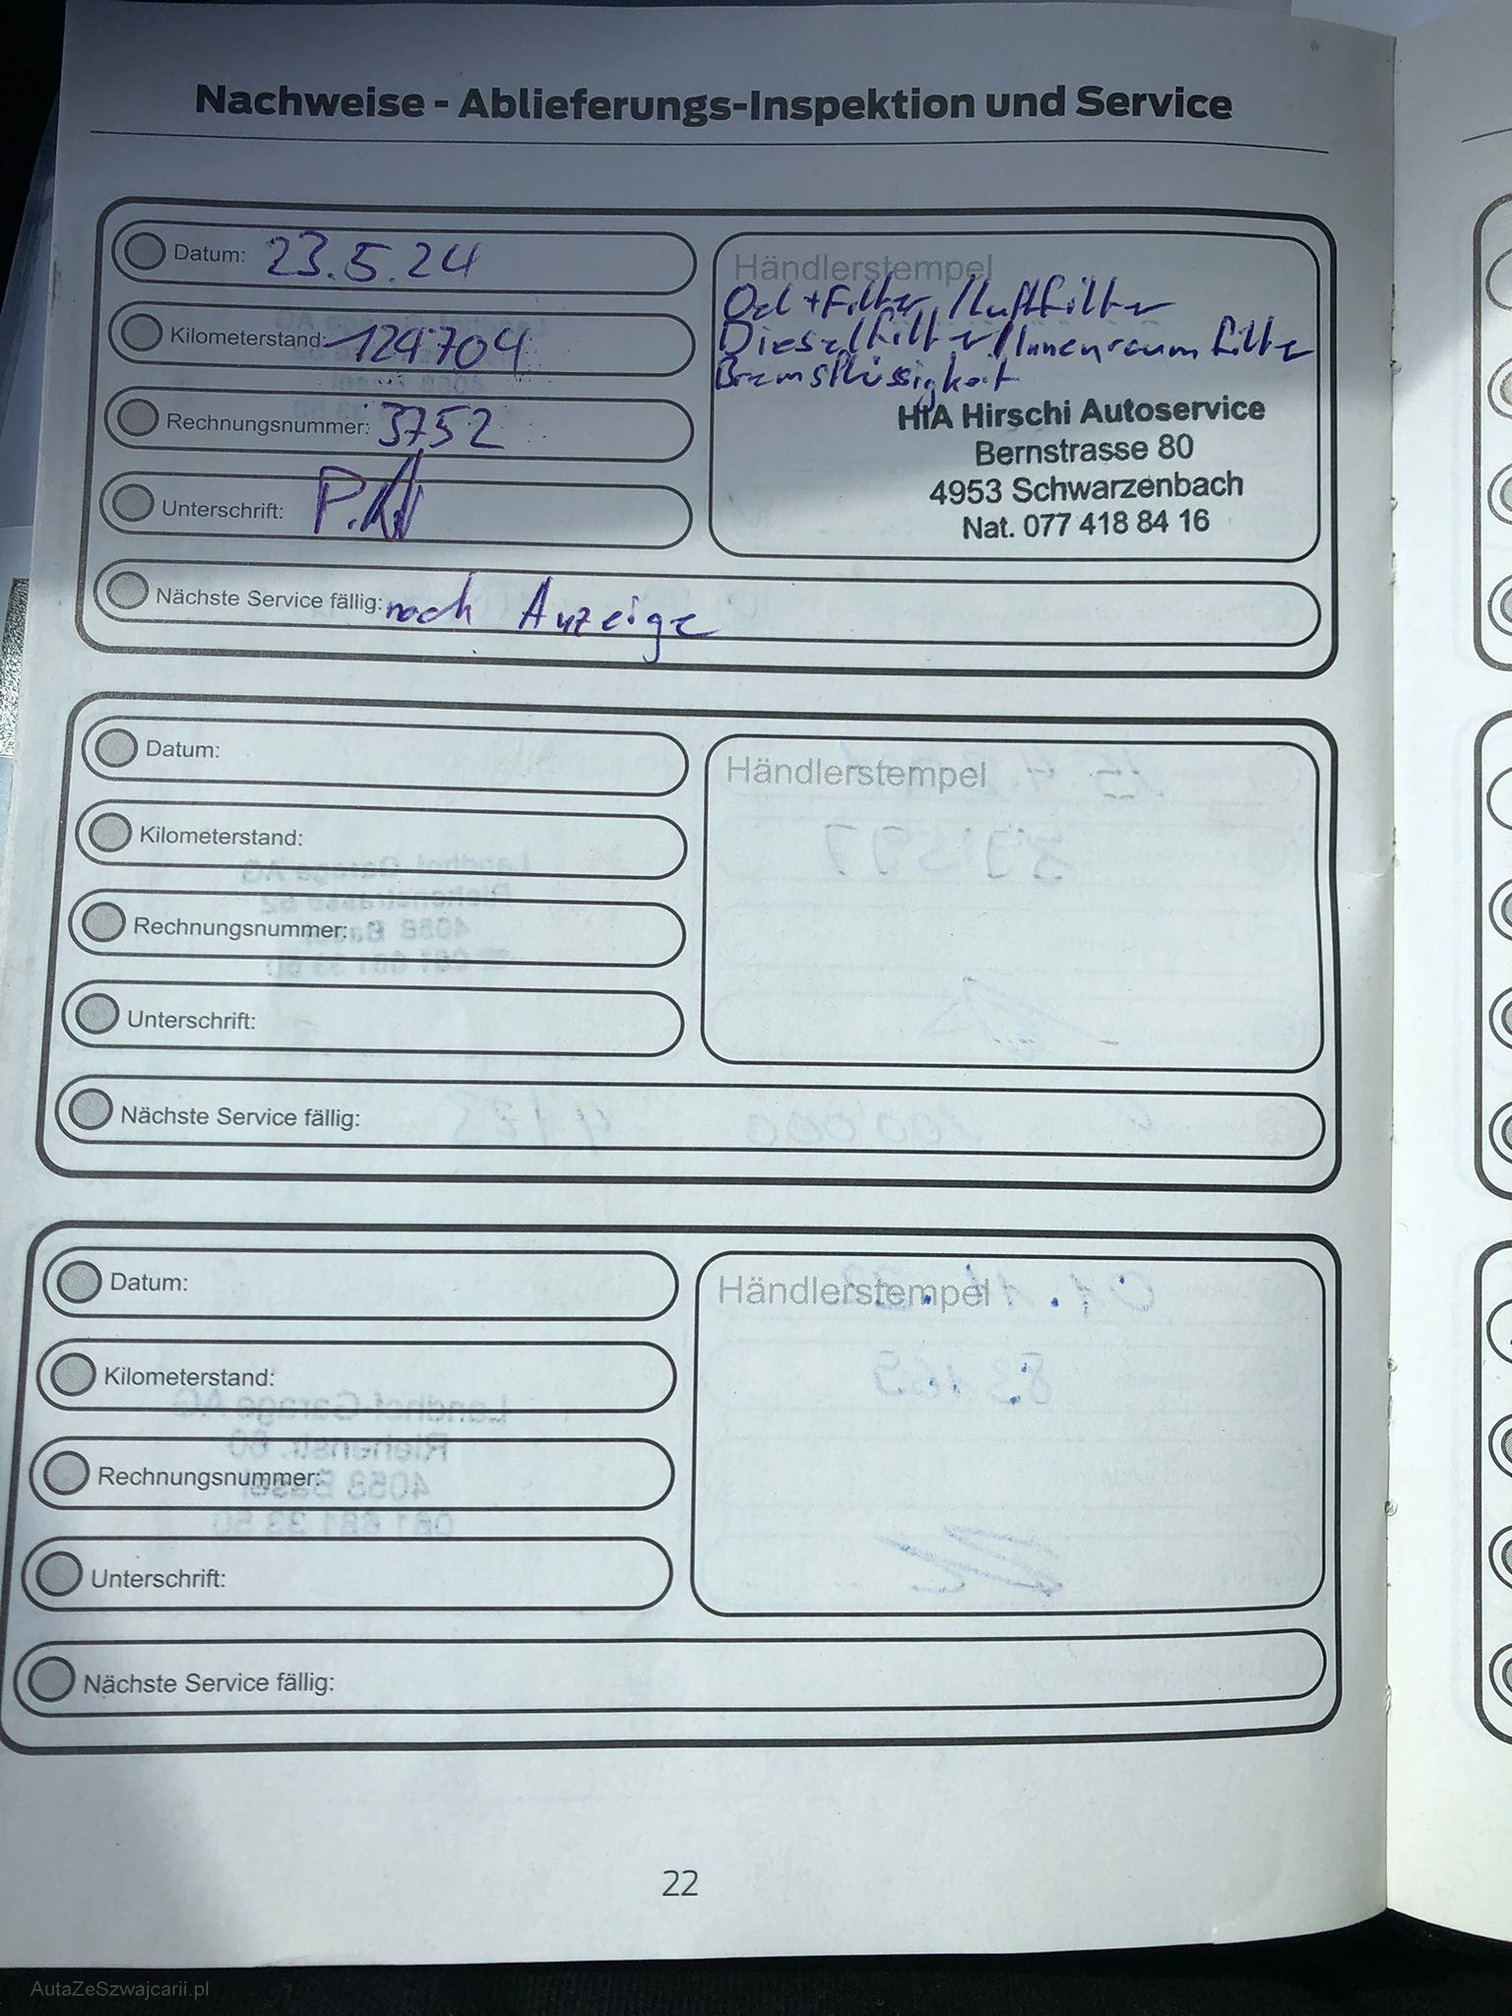 Nachweise - Ablieferungs-Inspektion und Service
Datum: 23.5.24
Kilometerstand: 124704
Rechnungsnummer: 3752
Unterschrift:
Nächste Service fällig: nach Anzeige
Händlerstempel
Oel + Filter / Luftfilter
Dieselfilter / Innenraumfilter
Bremsflüssigkeit
HIA Hirschi Autoservice
Bernstrasse 80
4953 Schwarzenbach
Nat. 077 418 84 16
Datum:
Kilometerstand:
Rechnungsnummer:
Unterschrift:
Nächste Service fällig:
Händlerstempel
Datum:
Kilometerstand:
Rechnungsnummer:
Unterschrift:
Nächste Service fällig:
Händlerstempel
22
AutaZeSzwajcarii.pl